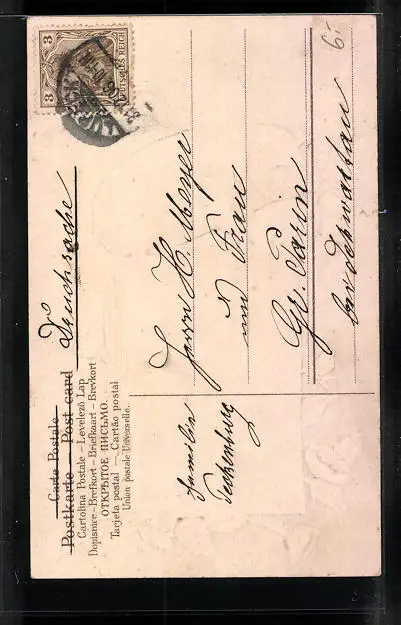 Carte Postale
Postkarte — Post card
Cartolina Postale – Levelező Lap
Dopisnice – Brefkort – Briefkaart – Brevkort
ОТКРЫТОЕ ПИСЬМО.
Tarjeta postal — Cartão postal
Union postale Universelle.
Drucksache
3 3
DEUTSCHES REICH
Familie
Teckenburg
Herrn H. Meyer
und Frau
Gr. Parin
bei Schwartau
6,-